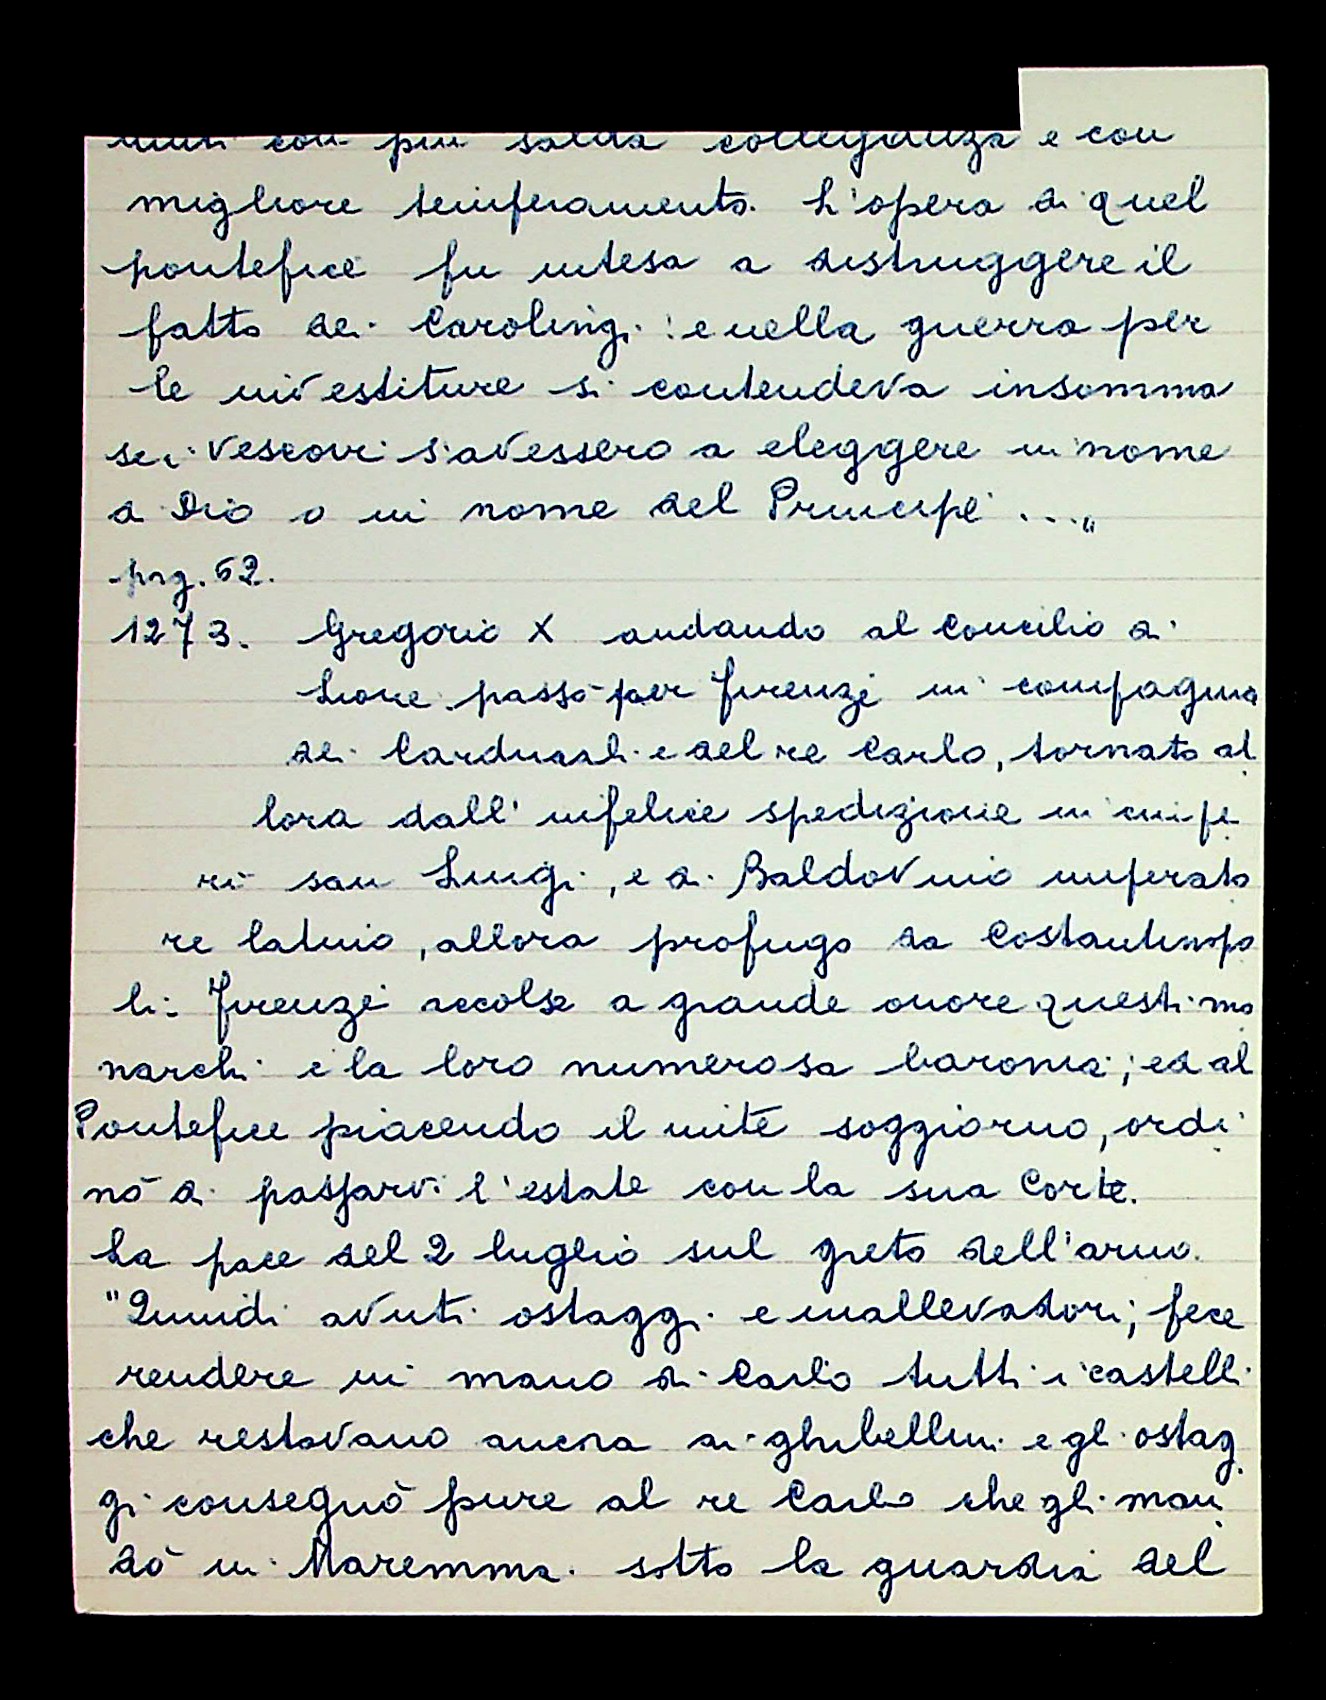 con più salda collegianza e con
migliore temperamento. L'opera di quel
pontefice fu intesa a distruggere il
fatto dei Carolingi: e nella guerra per
le investiture si contendeva insomma
se i Vescovi s'avessero a eleggere in nome
di Dio o in nome del Principe ..."
pag. 62.
1273. Gregorio X andando al Concilio di
Lione passò per Firenze in compagnia
dei Cardinali e del re Carlo, tornato al
lora dall'infelice spedizione in cui pe
rì san Luigi, e di Baldovino imperato
re latino, allora profugo da Costantinopo
li: Firenze accolse a grande onore questi mo
narchi e la loro numerosa baronia; ed al
Pontefice piacendo il mite soggiorno, ordi
nò di passarvi l'estate con la sua Corte.
La pace del 2 luglio sul greto dell'arno.
"Quindi avuti ostaggi e mallevadori; fece
rendere in mano di Carlo tutti i castelli
che restavano ancora ai ghibellini e gli ostag
gi consegnò pure al re Carlo che gli man
dò in Maremma sotto la guardia del